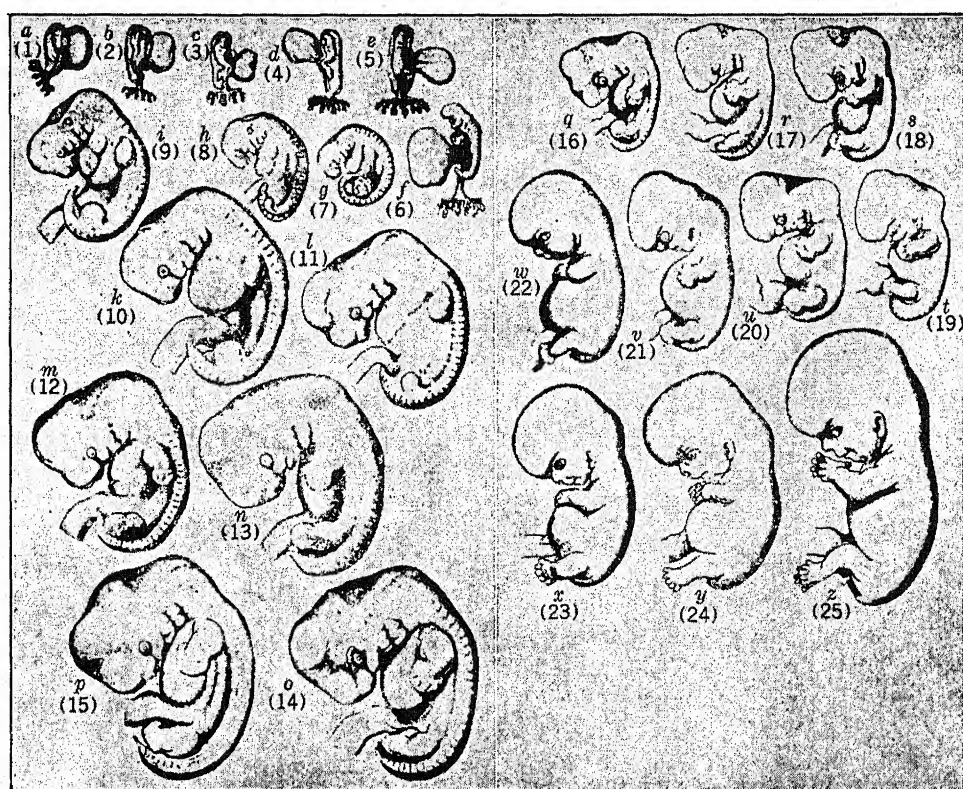 a
(1)
b
(2)
c
(3)
d
(4)
e
(5)
i
(9)
h
(8)
g
(7)
f
(6)
k
(10)
l
(11)
m
(12)
n
(13)
p
(15)
o
(14)
q
(16)
r
(17)
s
(18)
w
(22)
v
(21)
u
(20)
t
(19)
x
(23)
y
(24)
z
(25)